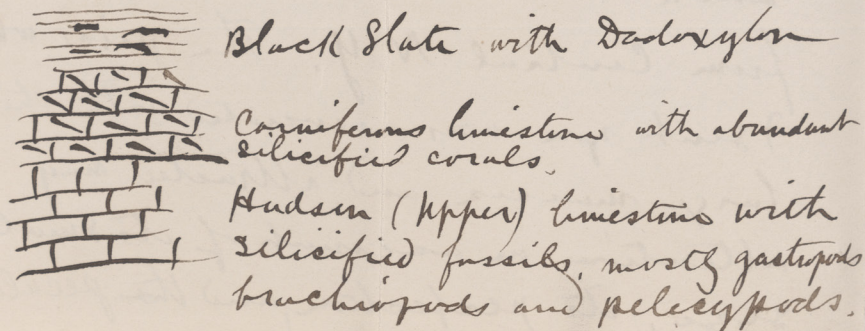 Black Slate with Dadoxylon
Corniferous limestone with abundant
silicified corals.
Hudson (Upper) limestone with
silicified fossils, mostly gastropods
brachiopods and pelecypods.